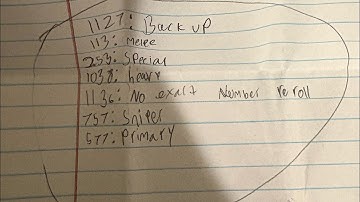 1127: Back up
113: melee
253: Special
1038: heavy
1136: No exact number re roll
757: Sniper
577: Primary